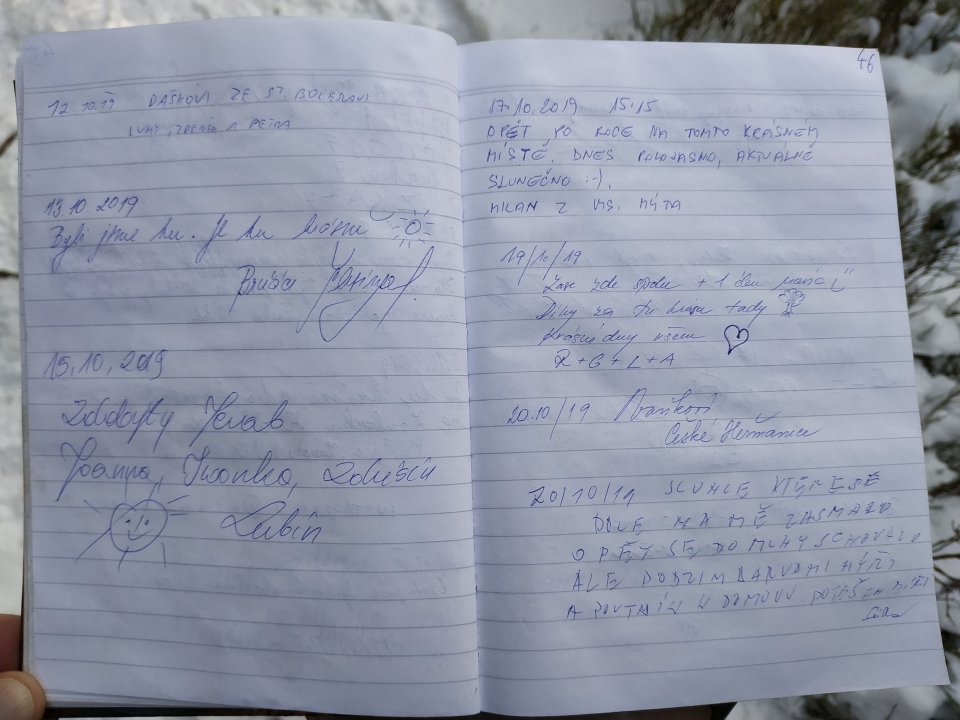 12.10.19 DAŠKOVI ZE ST. BOLESLAVI
LUKY, ZDENĚK A PETRA
13.10.2019
Byli jsme tu. je tu krásně
15,10,2019
Zdobyty Jeřab
Joanna, Iwonka, Zdzisiu
Lubin
46
17.10.2019 15:15
OPĚT PO ROCE NA TOMTO KRÁSNÉM
MÍSTĚ. DNES POLOJASNO, AKTUÁLNĚ
SLUNEČNO :-).
MILAN Z VYS. MÝTA
19/10/19
Zase zde spolu + 1 člen navíc
Díky za tu krásu tady
Krásné dny všem
R + G + L + A
20.10/19
České Heřmanice
20/10/19 SLUNCE KTERÉ SE
DOLE NA MĚ ZASMÁLO
OPĚT SE DO MLHY SCHOVALO
ALE PODZIM BARVAMI HÝŘÍ
A POUTNÍK K DOMOVU POTĚŠEN MÍŘÍ